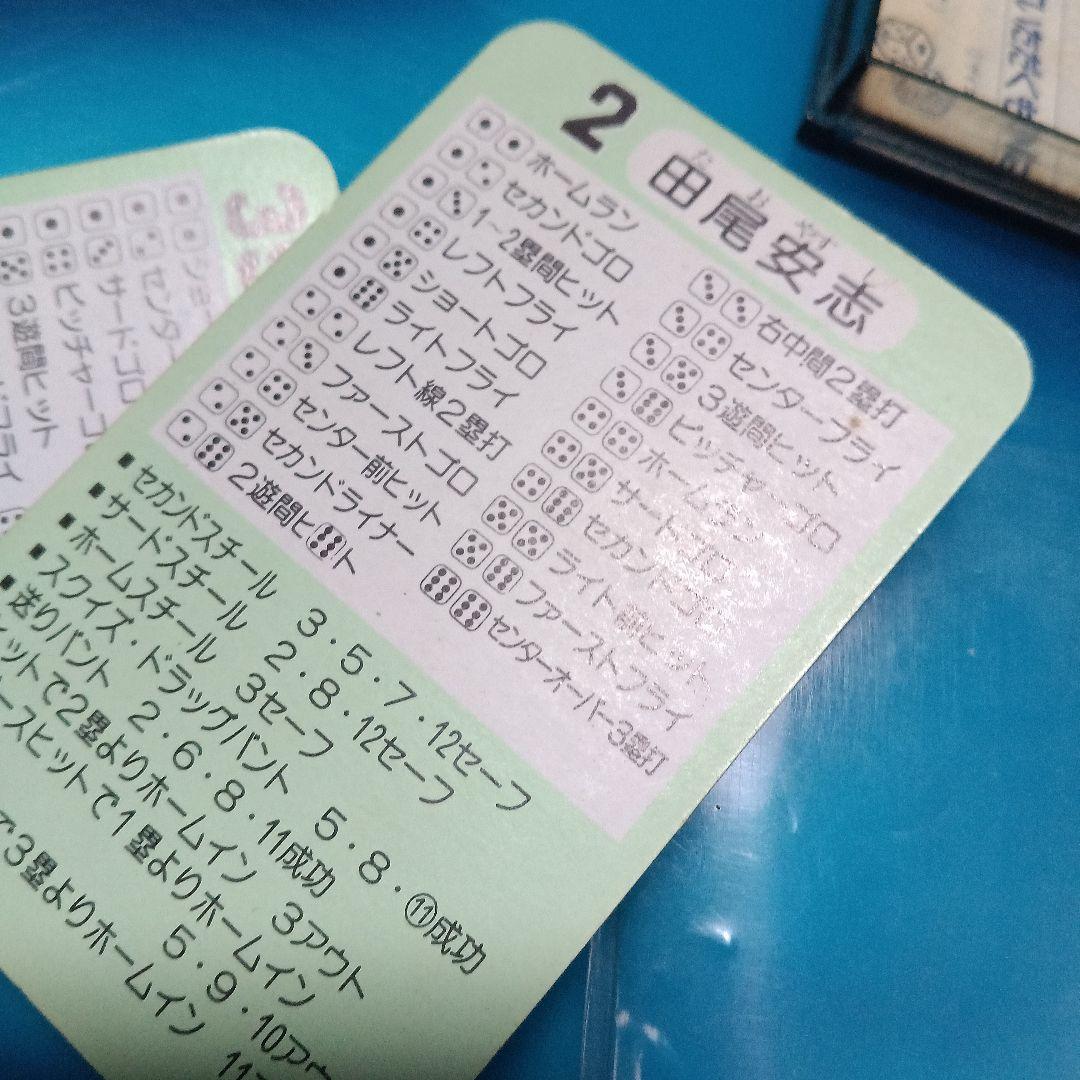 2 田尾安志
た お やす し
ホームラン
セカンドゴロ
1～2塁間ヒット
レフトフライ
ショートゴロ
ライトフライ
レフト線2塁打
ファーストゴロ
センター前ヒット
セカンドライナー
2遊間ヒ ト
右中間2塁打
センターフライ
3遊間ヒット
ピッチャーゴロ
ホームラン
サードゴロ
セカンドゴロ
ライト前ヒット
ファーストフライ
センターオーバー3塁打
■セカンドスチール 3・5・7・12セーフ
■サードスチール 2・8・12セーフ
■ホームスチール 3セーフ
■スクイズ・ドラッグバント 5・8・⑪成功
■送りバント 2・6・8・11成功
ットで2塁よりホームイン 3アウト
ースヒットで1塁よりホームイン
5・9・10アウ
で3塁よりホームイン
11
3
ショ
センター
サードゴロ
ピッチャーゴ
3遊間ヒット
フライ